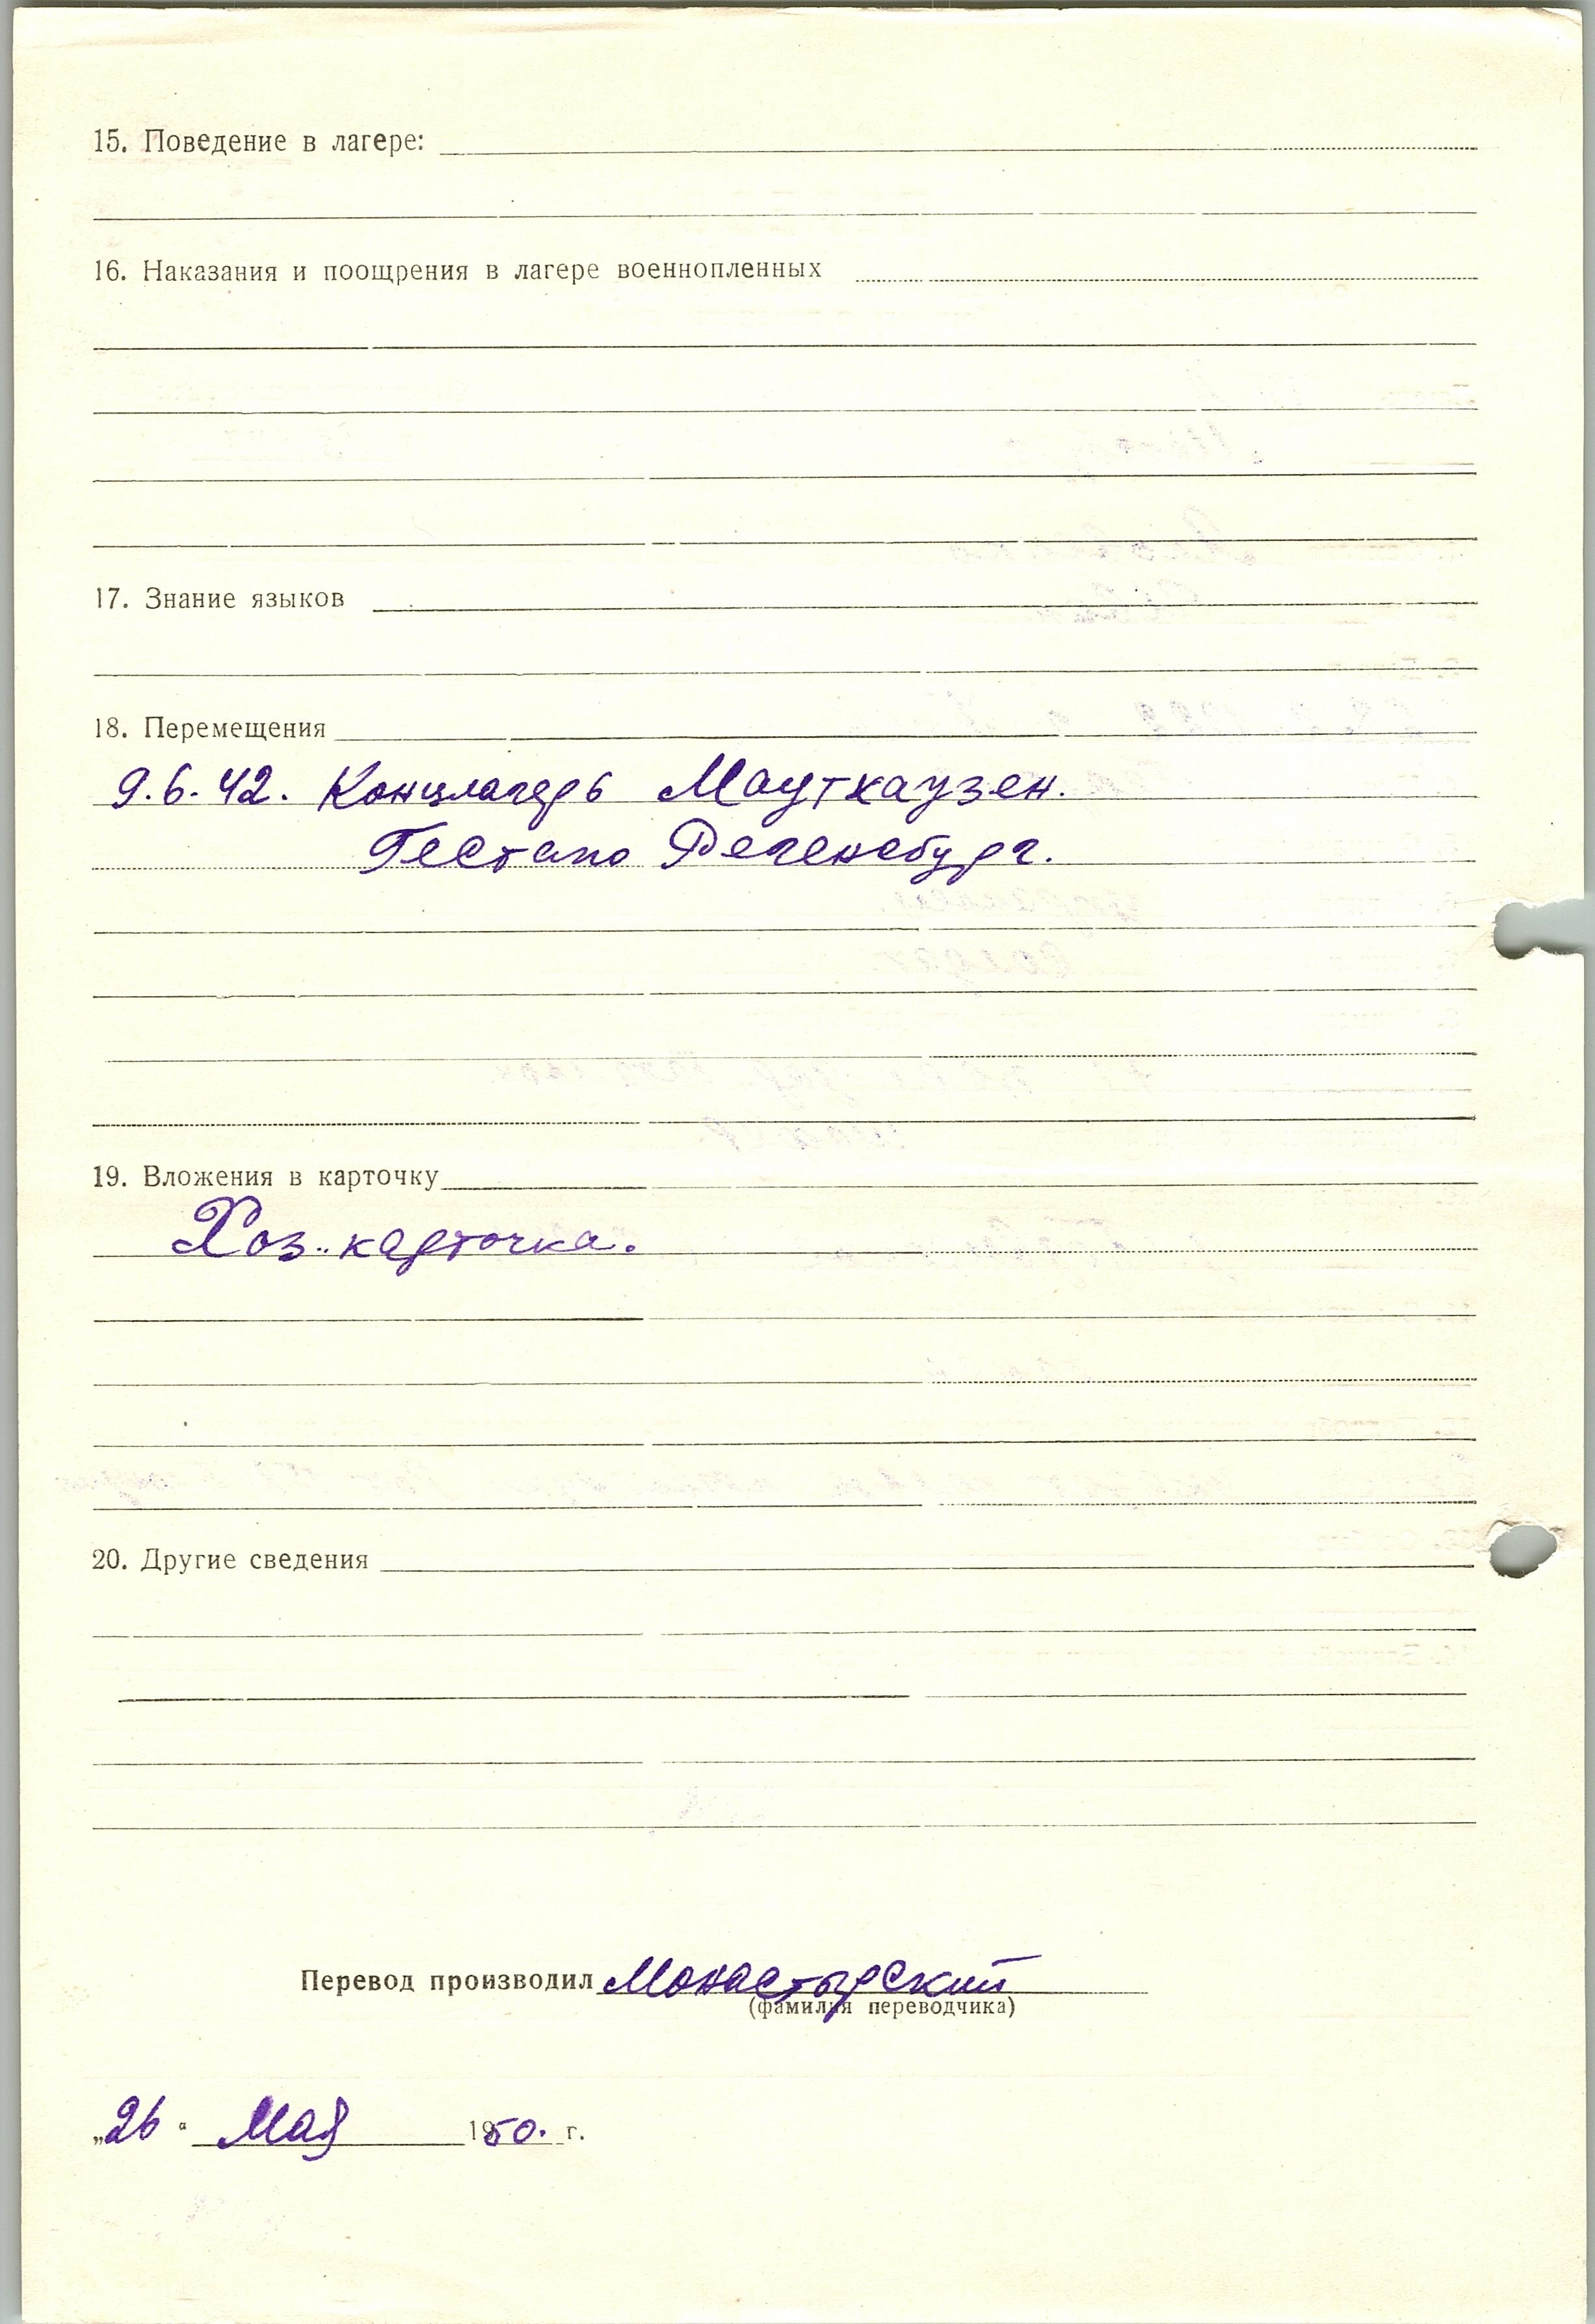 15. Поведение в лагере:
16. Наказания и поощрения в лагере военнопленных
17. Знание языков
18. Перемещения
9.6.42. Концлагерь Маутхаузен.
Гестапо Регенсбург.
19. Вложения в карточку
Хоз. карточка.
20. Другие сведения
Перевод производил Монастырский
(фамилия переводчика)
„26“ Мая 1950. г.